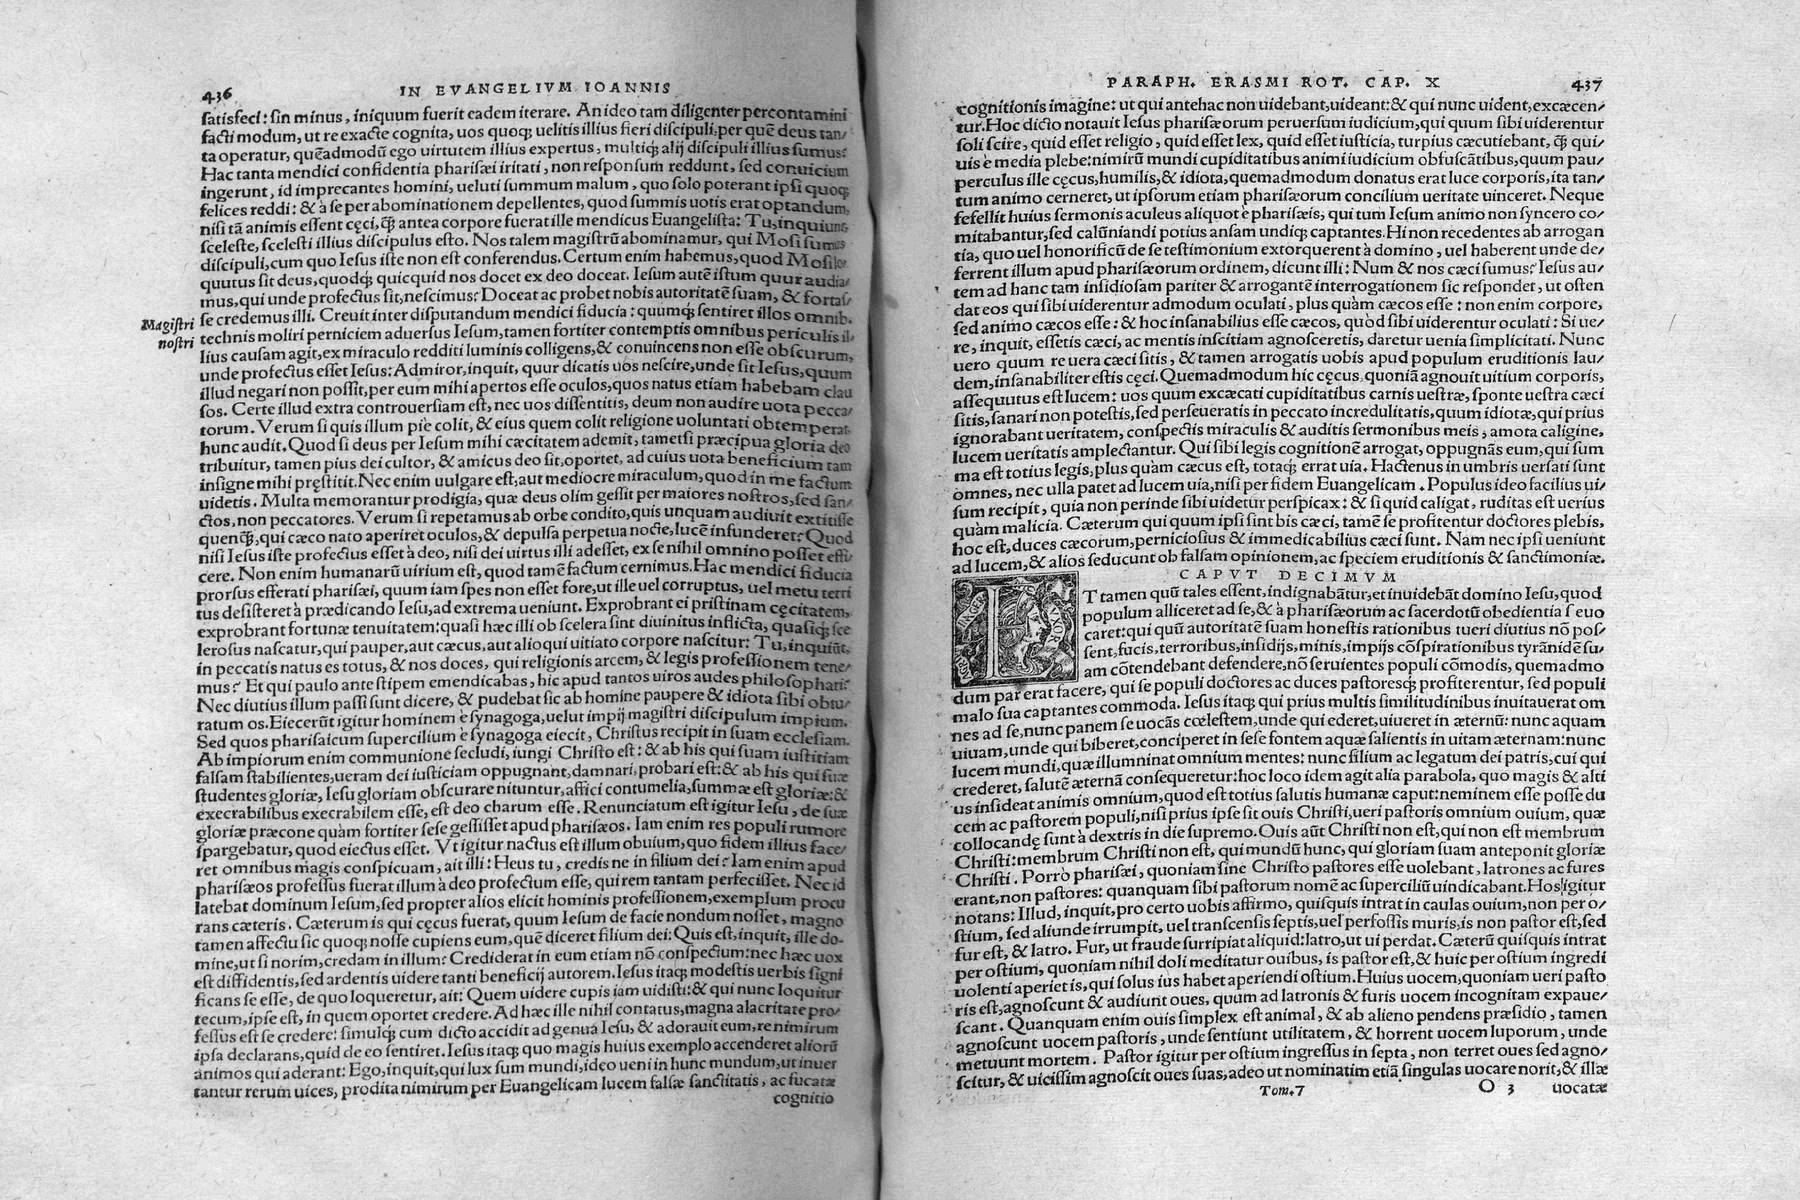 436 IN EVANGELIVM IOANNIS
satisfeci: sin minus, iniquum fuerit eadem iterare. An ideo tam diligenter percontamini
facti modum, ut re exacte cognita, uos quoq; uelitis illius fieri discipuli, per quē deus tan/
ta operatur, quēadmodū ego uirtutem illius expertus, multiq; alij discipuli illius sumus?
Hac tanta mendici confidentia pharisæi iritati, non responsum reddunt, sed conuicium
ingerunt, id imprecantes homini, ueluti summum malum, quo solo poterant ipsi quoq;
felices reddi: & à se per abominationem depellentes, quod summis uotis erat optandum,
nisi tā animis essent cęci, q̄ antea corpore fuerat ille mendicus Euangelista: Tu, inquiunt
sceleste, scelesti illius discipulus esto. Nos talem magistrū abominamur, qui Mosi sumus
discipuli, cum quo Iesus iste non est conferendus. Certum enim habemus, quod Mosi lo
quutus sit deus, quodq; quicquid nos docet ex deo doceat. Iesum autē istum quur audia/
mus, qui unde profectus sit, nescimus? Doceat ac probet nobis autoritatē suam, & fortas/
Magistri nostri
se credemus illi. Creuit inter disputandum mendici fiducia: quumq; sentiret illos omnib.
technis moliri perniciem aduersus Iesum, tamen fortiter contemptis omnibus periculis il/
lius causam agit, ex miraculo redditi luminis colligens, & conuincens non esse obscurum,
unde profectus esset Iesus: Admiror, inquit, quur dicatis uos nescire, unde sit Iesus, quum
illud negari non possit, per eum mihi apertos esse oculos, quos natus etiam habebam clau
sos. Certe illud extra controuersiam est, nec uos dissentitis, deum non audire uota pecca/
torum. Verum si quis illum piè colit, & eius quem colit religione uoluntati obtemperat,
hunc audit. Quod si deus per Iesum mihi cæcitatem ademit, tametsi præcipua gloria deo
tribuitur, tamen pius dei cultor, & amicus deo sit, oportet, ad cuius uota beneficium tam
insigne mihi pręstitit. Nec enim uulgare est, aut mediocre miraculum, quod in me factum
uidetis. Multa memorantur prodigia, quæ deus olim gessit per maiores nostros, sed san/
ctos, non peccatores. Verum si repetamus ab orbe condito, quis unquam audiuit extitisse
quenq̄, qui cæco nato aperiret oculos, & depulsa perpetua nocte, lucē infunderet? Quod
nisi Iesus iste profectus esset à deo, nisi dei uirtus illi adesset, ex se nihil omnino posset effi/
cere. Non enim humanarū uirium est, quod tamē factum cernimus. Hac mendici fiducia
prorsus efferati pharisæi, quum iam spes non esset fore, ut ille uel corruptus, uel metu territ
tus desisteret à prædicando Iesu, ad extrema ueniunt. Exprobrant ei pristinam cęcitatem,
exprobrant fortunæ tenuitatem: quasi hæc illi ob scelera sint diuinitus inflicta, quasiq; sce
lerosus nascatur, qui pauper, aut cæcus, aut alioqui uitiato corpore nascitur: Tu, inquiūt,
in peccatis natus es totus, & nos doces, qui religionis arcem, & legis professionem tene/
mus? Et qui paulo ante stipem emendicabas, hic apud tantos uiros audes philosophari?
Nec diutius illum passi sunt dicere, & pudebat sic ab homine paupere & idiota sibi obtu/
ratum os. Eiecerūt igitur hominem è synagoga, uelut impij magistri discipulum impium.
Sed quos pharisaicum supercilium è synagoga eiecit, Christus recipit in suam ecclesiam.
Ab impiorum enim communione secludi, iungi Christo est: & ab his qui suam iustitiam
falsam stabilientes, ueram dei iusticiam oppugnant, damnari, probari est: & ab his qui suæ
studentes gloriæ, Iesu gloriam obscurare nituntur, affici contumelia, summæ est gloriæ: &
execrabilibus execrabilem esse, est deo charum esse. Renunciatum est igitur Iesu, de suæ
gloriæ præcone quàm fortiter sese gessisset apud pharisæos. Iam enim res populi rumore
spargebatur, quod eiectus esset. Vt igitur nactus est illum obuium, quo fidem illius face/
ret omnibus magis conspicuam, ait illi: Heus tu, credis ne in filium dei? Iam enim apud
pharisæos professus fuerat illum à deo profectum esse, qui rem tantam perfecisset. Nec id
latebat dominum Iesum, sed propter alios elicit hominis professionem, exemplum procu
rans cæteris. Cæterum is qui cęcus fuerat, quum Iesum de facie nondum nosset, magno
tamen affectu sic quoq; nosse cupiens eum, quē diceret filium dei: Quis est, inquit, ille do-
mine, ut si norim, credam in illum? Crediderat in eum etiam nō conspectum: nec hæc uox
est diffidentis, sed ardentis uidere tanti beneficij autorem. Iesus itaq; modestis uerbis signi
ficans se esse, de quo loqueretur, ait: Quem uidere cupis iam uidisti: & qui nunc loquitur
tecum, ipse est, in quem oportet credere. Ad hæc ille nihil contatus, magna alacritate pro/
fessus est se credere: simulq; cum dicto accidit ad genua Iesu, & adorauit eum, re nimirum
ipsa declarans, quid de eo sentiret. Iesus itaq; quo magis huius exemplo accenderet aliorū
animos qui aderant: Ego, inquit, qui lux sum mundi, ideo ueni in hunc mundum, ut inuer
tantur rerum uices, prodita nimirum per Euangelicam lucem falsæ sanctitatis, ac fucatæ
cognitio
PARAPH. ERASMI ROT. CAP. X 437
cognitionis imagine: ut qui antehac non uidebant, uideant: & qui nunc uident, excæcen/
tur. Hoc dicto notauit Iesus pharisæorum peruersum iudicium, qui quum sibi uiderentur
soli scire, quid esset religio, quid esset lex, quid esset iusticia, turpius cæcutiebant, q̄ qui/
uis è media plebe: nimirū mundi cupiditatibus animi iudicium obfuscātibus, quum pau/
perculus ille cęcus, humilis, & idiota, quemadmodum donatus erat luce corporis, ita tan/
tum animo cerneret, ut ipsorum etiam pharisæorum concilium ueritate uinceret. Neque
fefellit huius sermonis aculeus aliquot è pharisæis, qui tum Iesum animo non syncero co/
mitabantur, sed calūniandi potius ansam undiq; captantes. Hi non recedentes ab arrogan
tia, quo uel honorificū de se testimonium extorquerent à domino, uel haberent unde de/
ferrent illum apud pharisæorum ordinem, dicunt illi: Num & nos cæci sumus? Iesus au/
tem ad hanc tam insidiosam pariter & arrogantē interrogationem sic respondet, ut osten
dat eos qui sibi uiderentur admodum oculati, plus quàm cæcos esse: non enim corpore,
sed animo cæcos esse: & hoc insanabilius esse cæcos, quòd sibi uiderentur oculati: Si ue/
re, inquit, essetis cæci, ac mentis inscitiam agnosceretis, daretur uenia simplicitati. Nunc
uero quum re uera cæci sitis, & tamen arrogatis uobis apud populum eruditionis lau/
dem, insanabiliter estis cęci. Quemadmodum hic cęcus, quoniā agnouit uitium corporis,
assequutus est lucem: uos quum excæcati cupiditatibus carnis uestræ, sponte uestra cæci
sitis, sanari non potestis, sed perseueratis in peccato incredulitatis, quum idiotæ, qui prius
ignorabant ueritatem, conspectis miraculis & auditis sermonibus meis, amota caligine,
lucem ueritatis amplectantur. Qui sibi legis cognitionē arrogat, oppugnās eum, qui sum
ma est totius legis, plus quàm cæcus est, totaq; errat uia. Hactenus in umbris uersati sunt
omnes, nec ulla patet ad lucem uia, nisi per fidem Euangelicam. Populus ideo facilius ui/
sum recipit, quia non perinde sibi uidetur perspicax: & si quid caligat, ruditas est uerius
quàm malicia. Cæterum qui quum ipsi sint bis cæci, tamē se profitentur doctores plebis,
hoc est, duces cæcorum, perniciosius & immedicabilius cæci sunt. Nam nec ipsi ueniunt
ad lucem, & alios seducunt ob falsam opinionem, ac speciem eruditionis & sanctimoniæ.
CAPVT DECIMVM
ET tamen quū tales essent, indignabātur, et inuidebāt domino Iesu, quod
populum alliceret ad se, & à pharisæorum ac sacerdotū obedientia seuo
caret: qui quū autoritatē suam honestis rationibus tueri diutius nō pos/
sent, fucis, terroribus, insidijs, minis, impijs cōspirationibus tyrānidē su/
am cōtendebant defendere, nō seruientes populi cōmodis, quemadmo
dum par erat facere, qui se populi doctores ac duces pastoresq; profiterentur, sed populi
malo sua captantes commoda. Iesus itaq; qui prius multis similitudinibus inuitauerat om
nes ad se, nunc panem se uocās cœlestem, unde qui ederet, uiueret in æternū: nunc aquam
uiuam, unde qui biberet, conciperet in sese fontem aquæ salientis in uitam æternam: nunc
lucem mundi, quæ illuminat omnium mentes: nunc filium ac legatum dei patris, cui qui
crederet, salutē æternā consequeretur: hoc loco idem agit alia parabola, quo magis & alti
us insideat animis omnium, quod est totius salutis humanæ caput: neminem esse posse du
cem ac pastorem populi, nisi prius ipse sit ouis Christi, ueri pastoris omnium ouium, quæ
collocandę sunt à dextris in die supremo. Ouis aūt Christi non est, qui non est membrum
Christi: membrum Christi non est, qui mundū hunc, qui gloriam suam anteponit gloriæ
Christi. Porrò pharisæi, quoniam sine Christo pastores esse uolebant, latrones ac fures
erant, non pastores: quanquam sibi pastorum nomē ac superciliū uindicabant. Hos igitur
notans: Illud, inquit, pro certo uobis affirmo, quisquis intrat in caulas ouium, non per o/
stium, sed aliunde irrumpit, uel transcensis septis, uel perfossis muris, is non pastor est, sed
fur est, & latro. Fur, ut fraude surripiat aliquid: latro, ut ui perdat. Cæterū quisquis intrat
per ostium, quoniam nihil doli meditatur ouibus, is pastor est, & huic per ostium ingredi
uolenti aperiet is, qui solus ius habet aperiendi ostium. Huius uocem, quoniam ueri pasto
ris est, agnoscunt & audiunt oues, quum ad latronis & furis uocem incognitam expaue/
scant. Quanquam enim ouis simplex est animal, & ab alieno pendens præsidio, tamen
agnoscunt uocem pastoris, unde sentiunt utilitatem, & horrent uocem luporum, unde
metuunt mortem. Pastor igitur per ostium ingressus in septa, non terret oues sed agno/
scitur, & uicissim agnoscit oues suas, adeo ut nominatim etiā singulas uocare norit, & illæ
Tom. 7 O 3 uocatæ